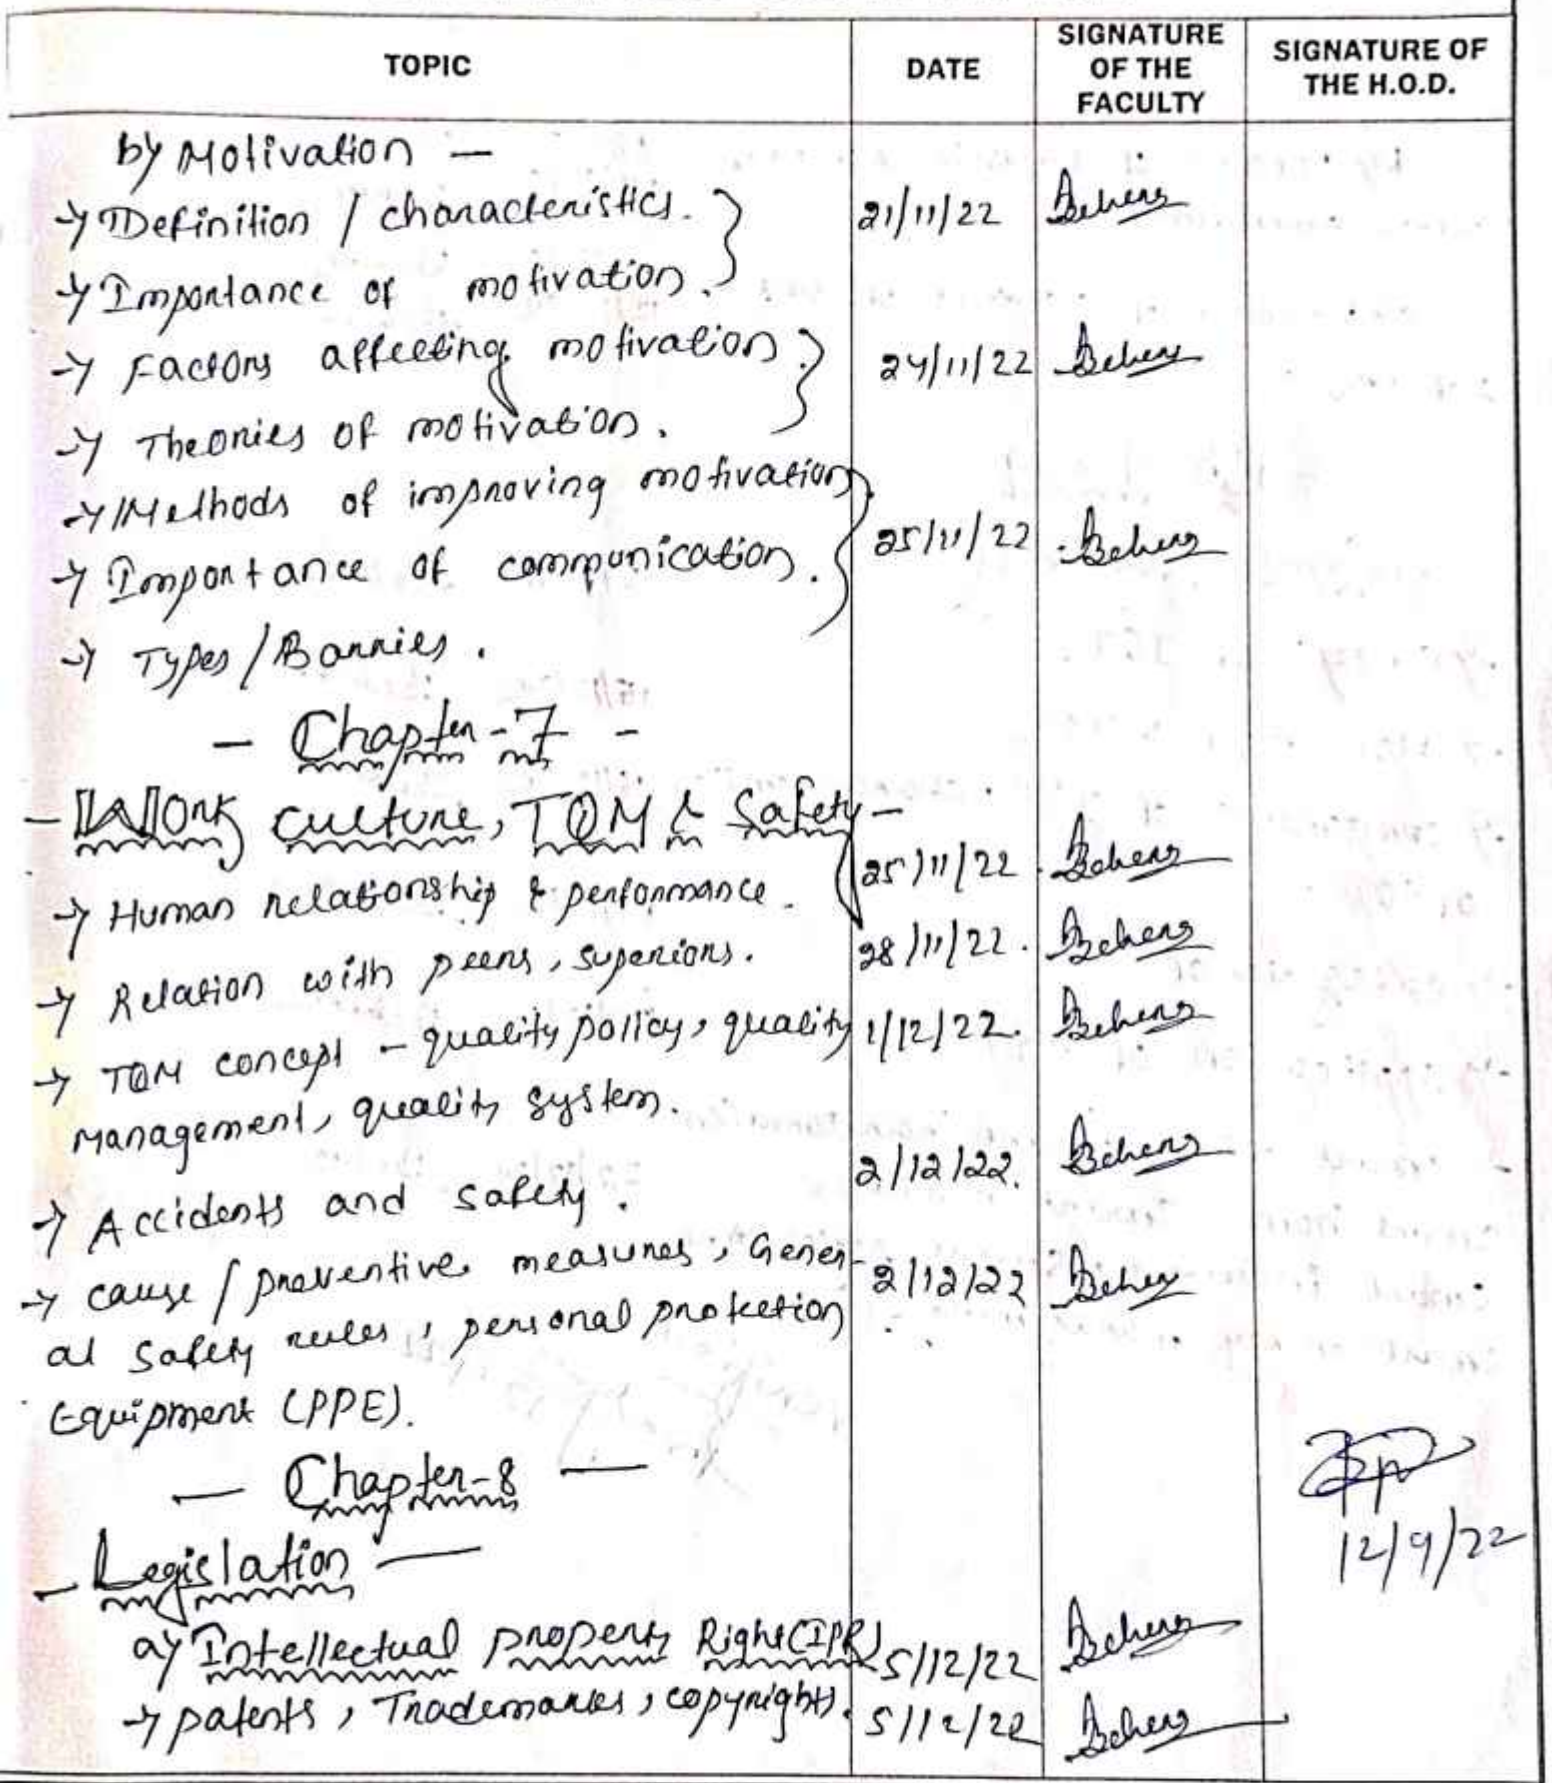 TOPIC DATE SIGNATURE OF THE FACULTY SIGNATURE OF THE H.O.D.
b) Motivation —
→ Definition / characteristics. 21/11/22 Behera
→ Importance of motivation.
→ Factors affecting motivation. 24/11/22 Behera
→ Theories of motivation.
→ Methods of improving motivation
→ Importance of communication. 25/11/22 Behera
→ Types / Barries.
— Chapter-7 -
- Work culture, TQM & Safety -
→ Human relationship & performance. 25/11/22 Behera
→ Relation with peers, superiors. 28/11/22. Behera
→ TQM concept - quality policy, quality 1/12/22. Behera
management, quality system.
→ Accidents and safety. 2/12/22. Behera
→ cause / preventive measures, Gener- 2/12/22 Behera
al safety rules, personal protection
Equipment (PPE).
— Chapter-8 —
- Legislation —
12/9/22
a) Intellectual property Right (IPR) 5/12/22 Behera
→ patents, Trademarks, copyrights. 5/12/22 Behera